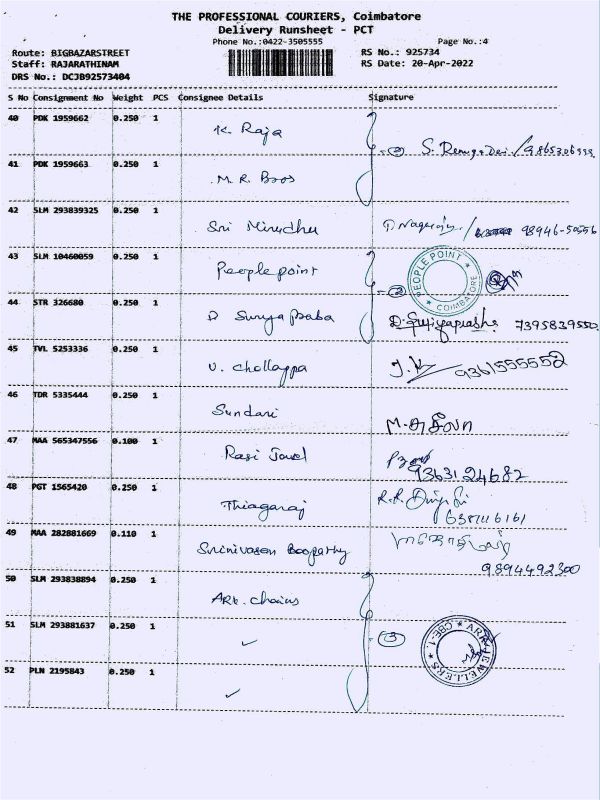 THE PROFESSIONAL COURIERS, Coimbatore
Delivery Runsheet - PCT
Phone No.:0422-3505555 Page No.:4
Route: BIGBAZARSTREET RS No.: 925734
Staff: RAJARATHINAM RS Date: 20-Apr-2022
DRS No.: DCJB92573404
S No Consignment No Weight PCS Consignee Details Signature
40 PDK 1959662 0.250 1 K. Raja
41 PDK 1959663 0.250 1 M. R. Bros
42 SLM 293839325 0.250 1 Sri Mirudhu 98946-50556
43 SLM 10460059 0.250 1 People point PEOPLE POINT COIMBATORE
44 STR 326680 0.250 1 D Suryapraba 7395839550
45 TVL 5253336 0.250 1 V. Chollappa 9361555552
46 TDR 5335444 0.250 1 Sundari
47 MAA 565347556 0.100 1 Rasi Jowel 9363124682
48 PGT 1565420 0.250 1 Thiagaraj
49 MAA 282881669 0.110 1 Srinivasan Boopathy 9894492300
50 SLM 293838894 0.250 1 ARR. Chains
51 SLM 293881637 0.250 1 ✓ 3 ARR JEWELLERS CBE-1
52 PLN 2195843 0.250 1 ✓